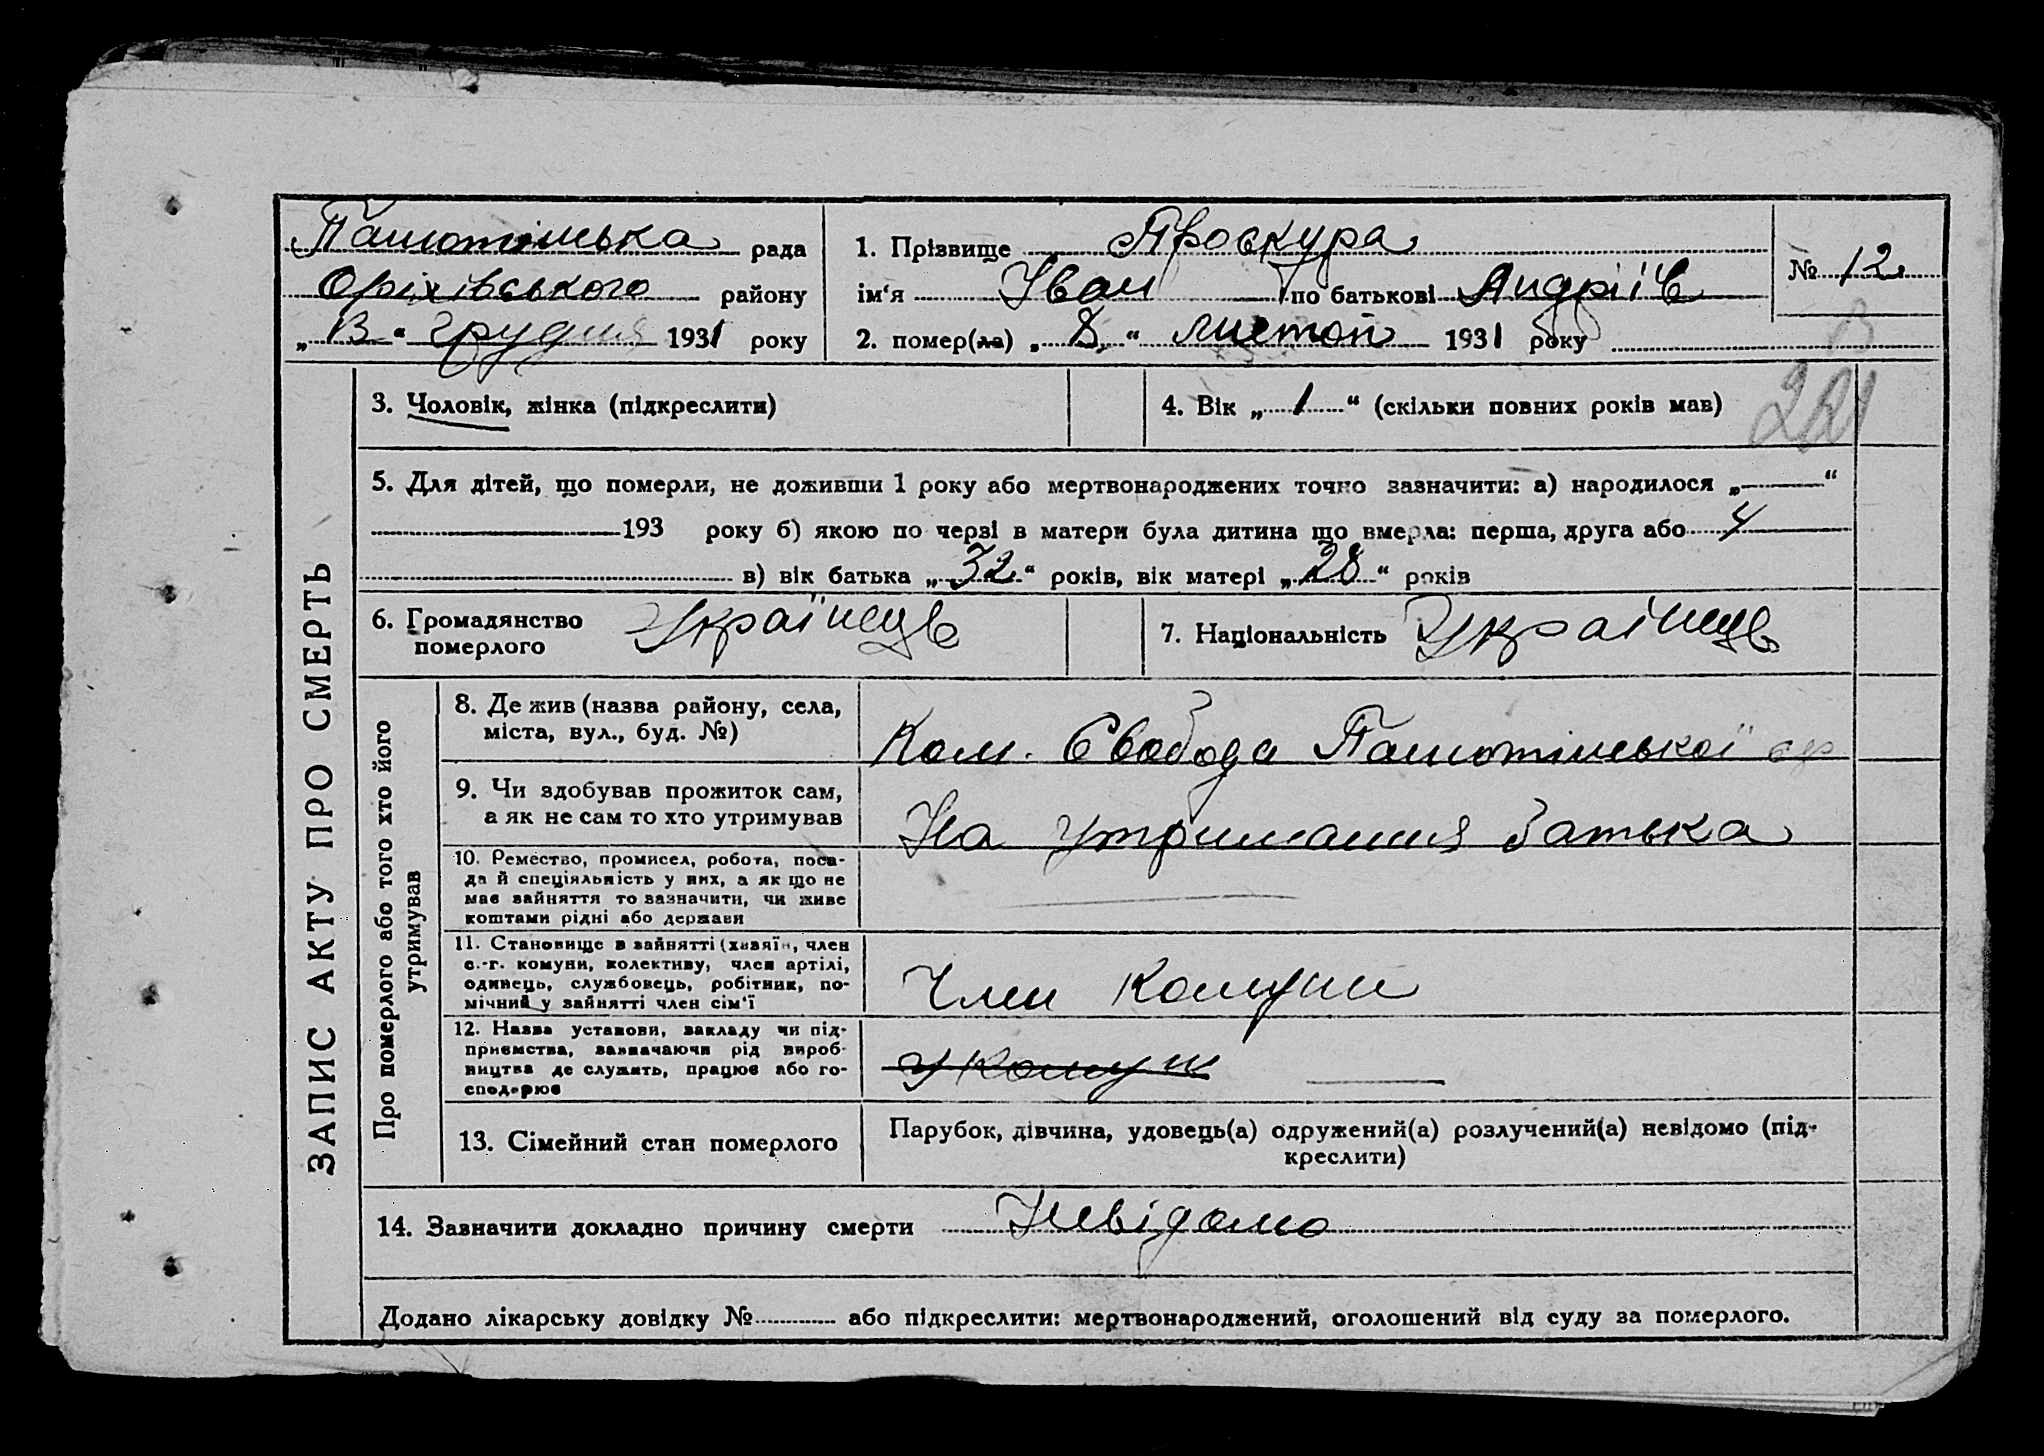 ЗАПИС АКТУ ПРО СМЕРТЬ
рада
Оріхівського району
„ 13 “ грудня 1931 року
1. Прізвище Проскура
ім‘я Іван по батькові Андріїв
2. помер(ла) „ 8 “ листоп 1931 року
№ 12
221
3. Чоловік, жінка (підкреслити)
4. Вік „ 1 “ (скільки повних років мав)
5. Для дітей, що померли, не доживши 1 року або мертвонароджених точно зазначити: а) народилося „ — “
193 року б) якою по черзі в матери була дитина що вмерла: перша, друга або 4
в) вік батька „ 32 “ років, вік матері „ 28 “ років
6. Громадянство
померлого
Українець
7. Національність Українець
Про померлого або того хто його
утримував
8. Де жив (назва району, села,
міста, вул., буд. №)
Ком. Свобода
9. Чи здобував прожиток сам,
а як не сам то хто утримував
На утримания батька
10. Ремество, промисел, робота, поса-
да й спеціяльність у них, а як що не
має зайняття то зазначити, чи живе
коштами рідні або держави
11. Становище в зайнятті (хазяїн, член
с.-г. комуни, колективу, член артілі,
одинець, службовець, робітник, по-
мічний у зайнятті член сім‘ї
Член комуни
12. Назва установи, закладу чи під-
приємства, зазначаючи рід вироб-
ництва де служить, працює або го-
сподарює
У Комун
13. Сімейний стан померлого
Парубок, дівчина, удовець(а) одружений(а) розлучений(а) невідомо (під-
креслити)
14. Зазначити докладно причину смерти Невідомо
Додано лікарську довідку № або підкреслити: мертвонароджений, оголошений від суду за померлого.